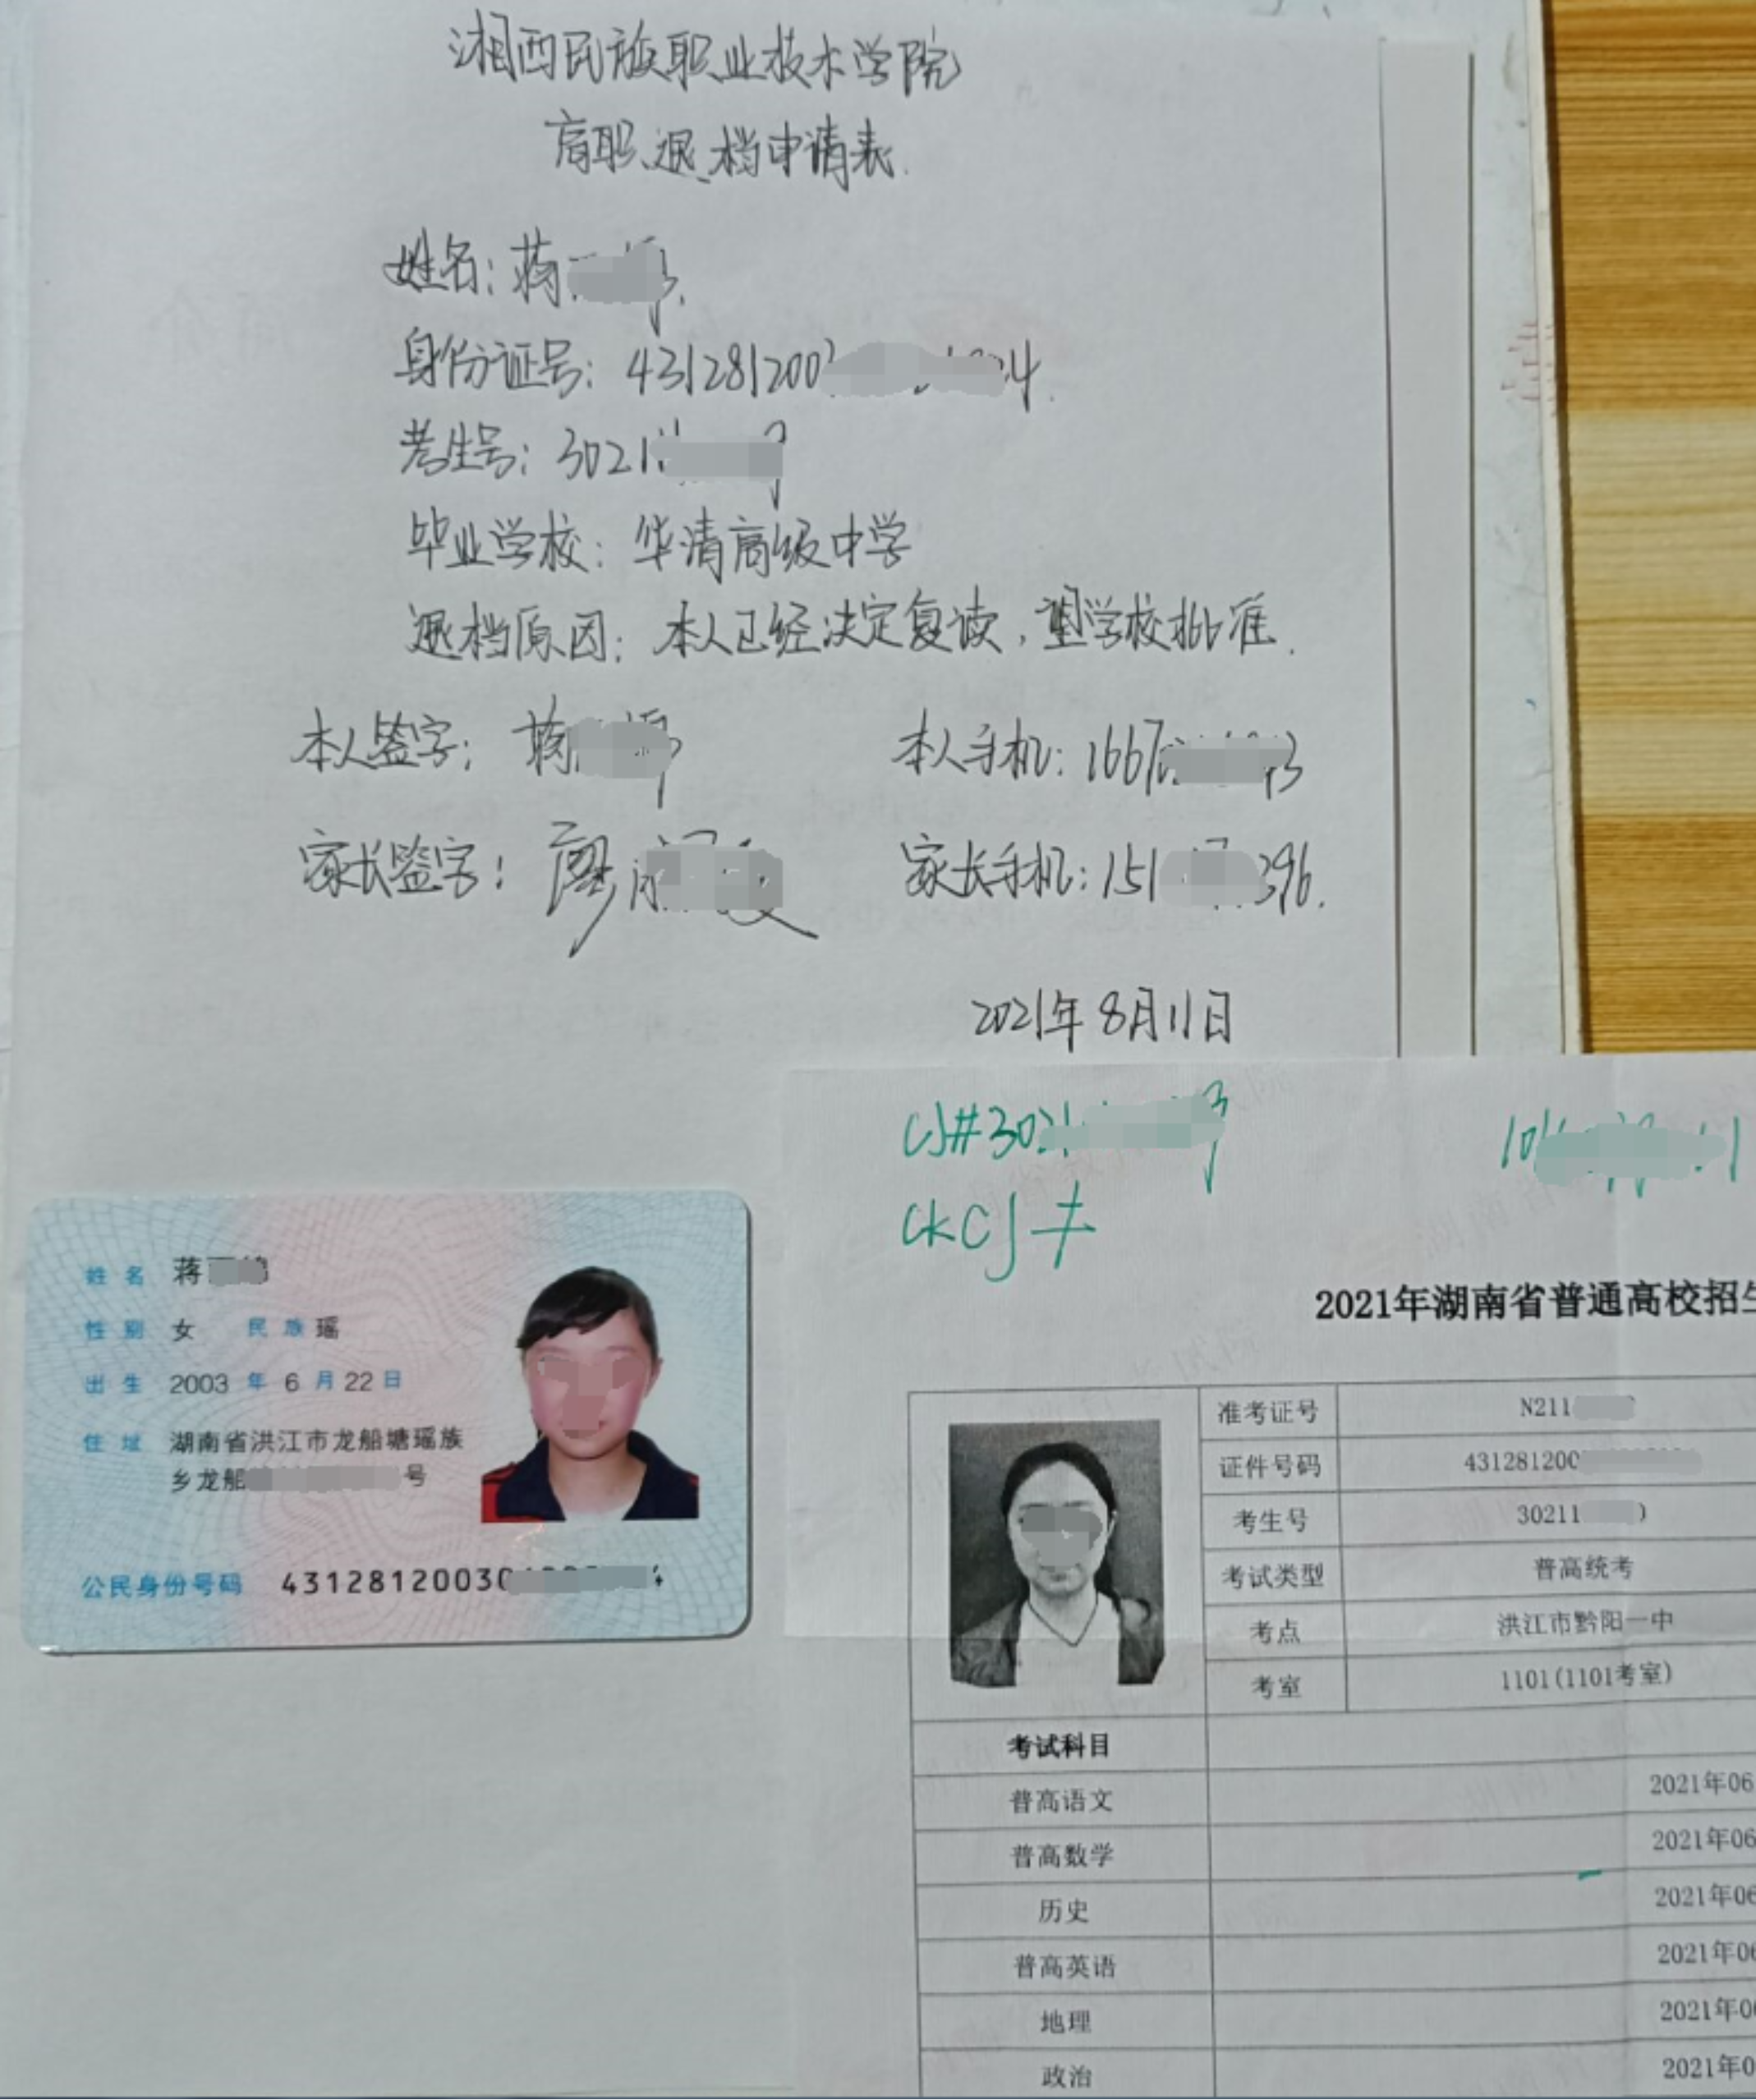 湘西民族职业技术学院
高职退档申请表.
姓名: 蒋
身份证号: 43128120034
考生号: 3021
毕业学校: 华清高级中学
退档原因: 本人已经决定复读,望学校批准.
本人签字: 蒋
本人手机: 1667 3
家长签字: 廖
家长手机: 151 396.
2021年8月11日
CJ#3021
CKCJ
姓名 蒋
性别 女 民族 瑶
出生 2003年6月22日
住址 湖南省洪江市龙船塘瑶族
乡龙船 号
公民身份号码 43128120030 4
2021年湖南省普通高校招生
准考证号 N211
证件号码 431281200
考生号 30211
考试类型 普高统考
考点 洪江市黔阳一中
考室 1101(1101考室)
考试科目
普高语文 2021年06
普高数学 2021年06
历史 2021年06
普高英语 2021年06
地理 2021年06
政治 2021年0